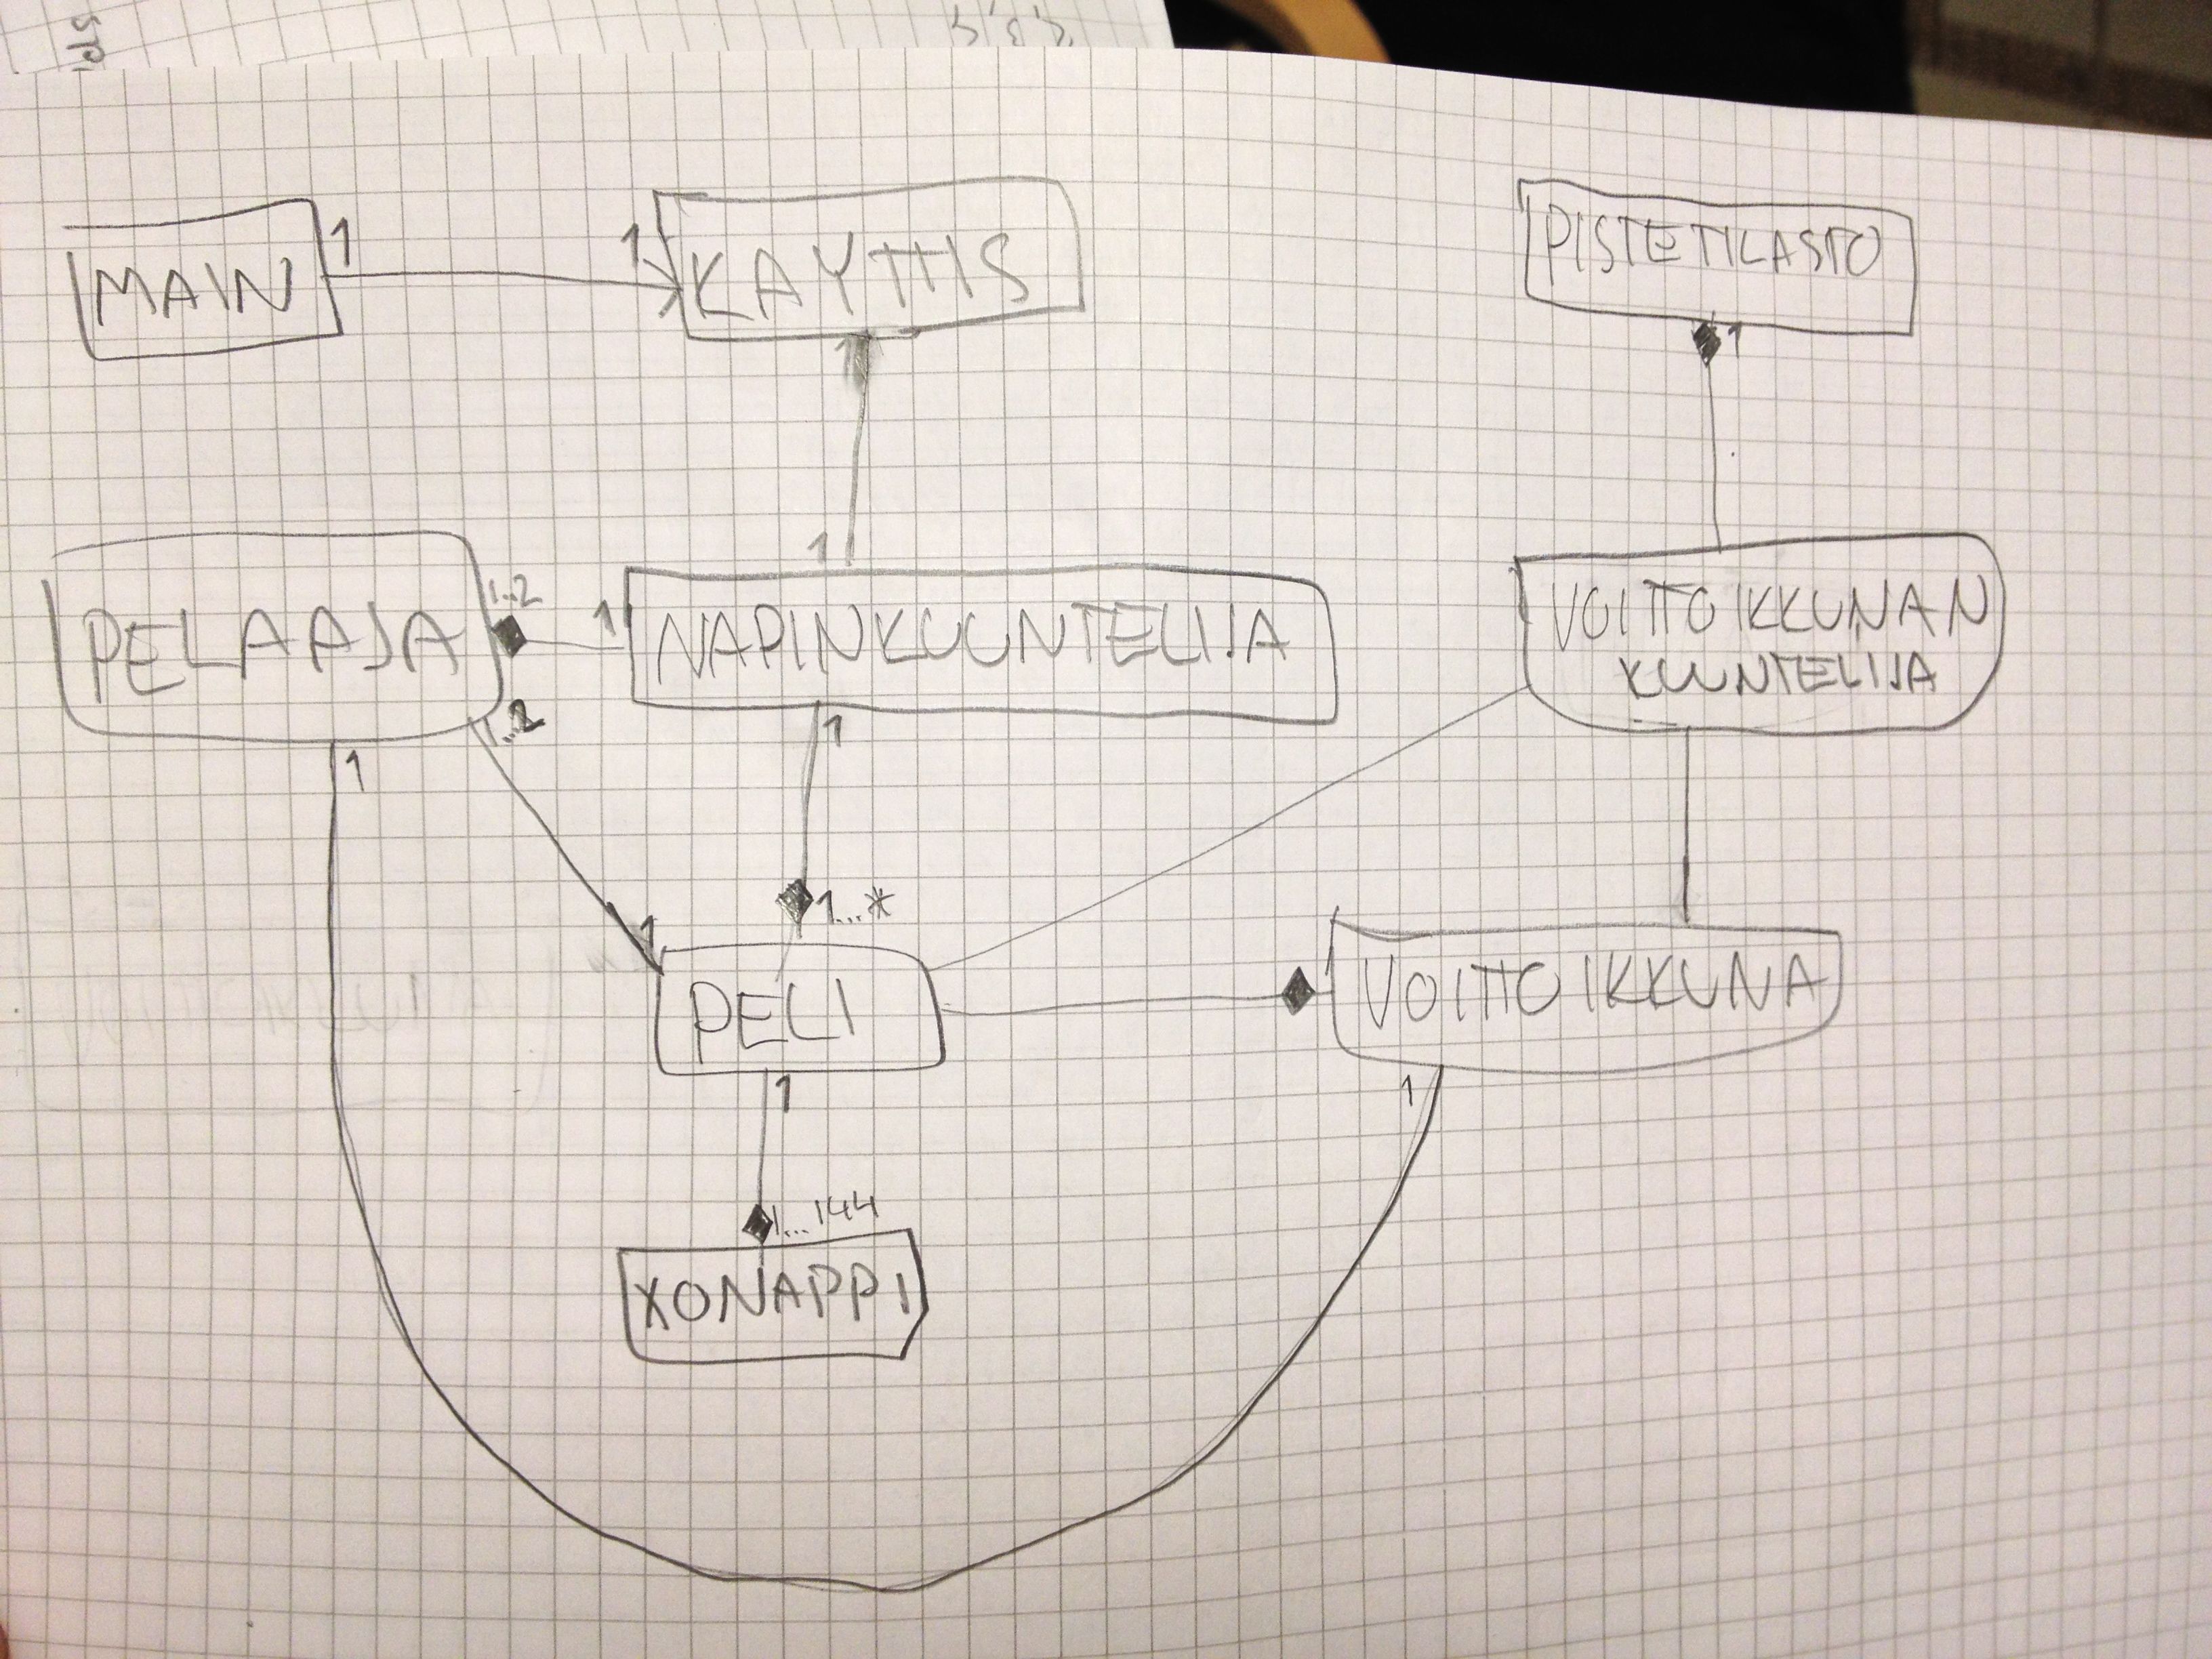 MAIN
1
1
KAYTTIS
PISTETILASTO
1
1
1
PELAAJA
1..2
1
NAPINKUUNTELIJA
VOITTOIKKUNAN
KUUNTELIJA
1..2
1
1
1...*
1
PELI
1
VOITTOIKKUNA
1
1
1...144
XONAPPI